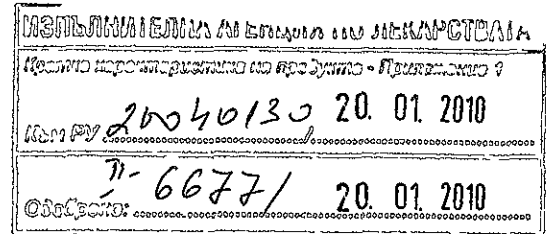 ИЗПЪЛНИТЕЛНА АГЕНЦИЯ ПО ЛЕКАРСТВАТА
Кратка характеристика на продукта - Приложение 1
Към РУ 20040130/ 20. 01. 2010
Одобрено: II- 6677/ 20. 01. 2010